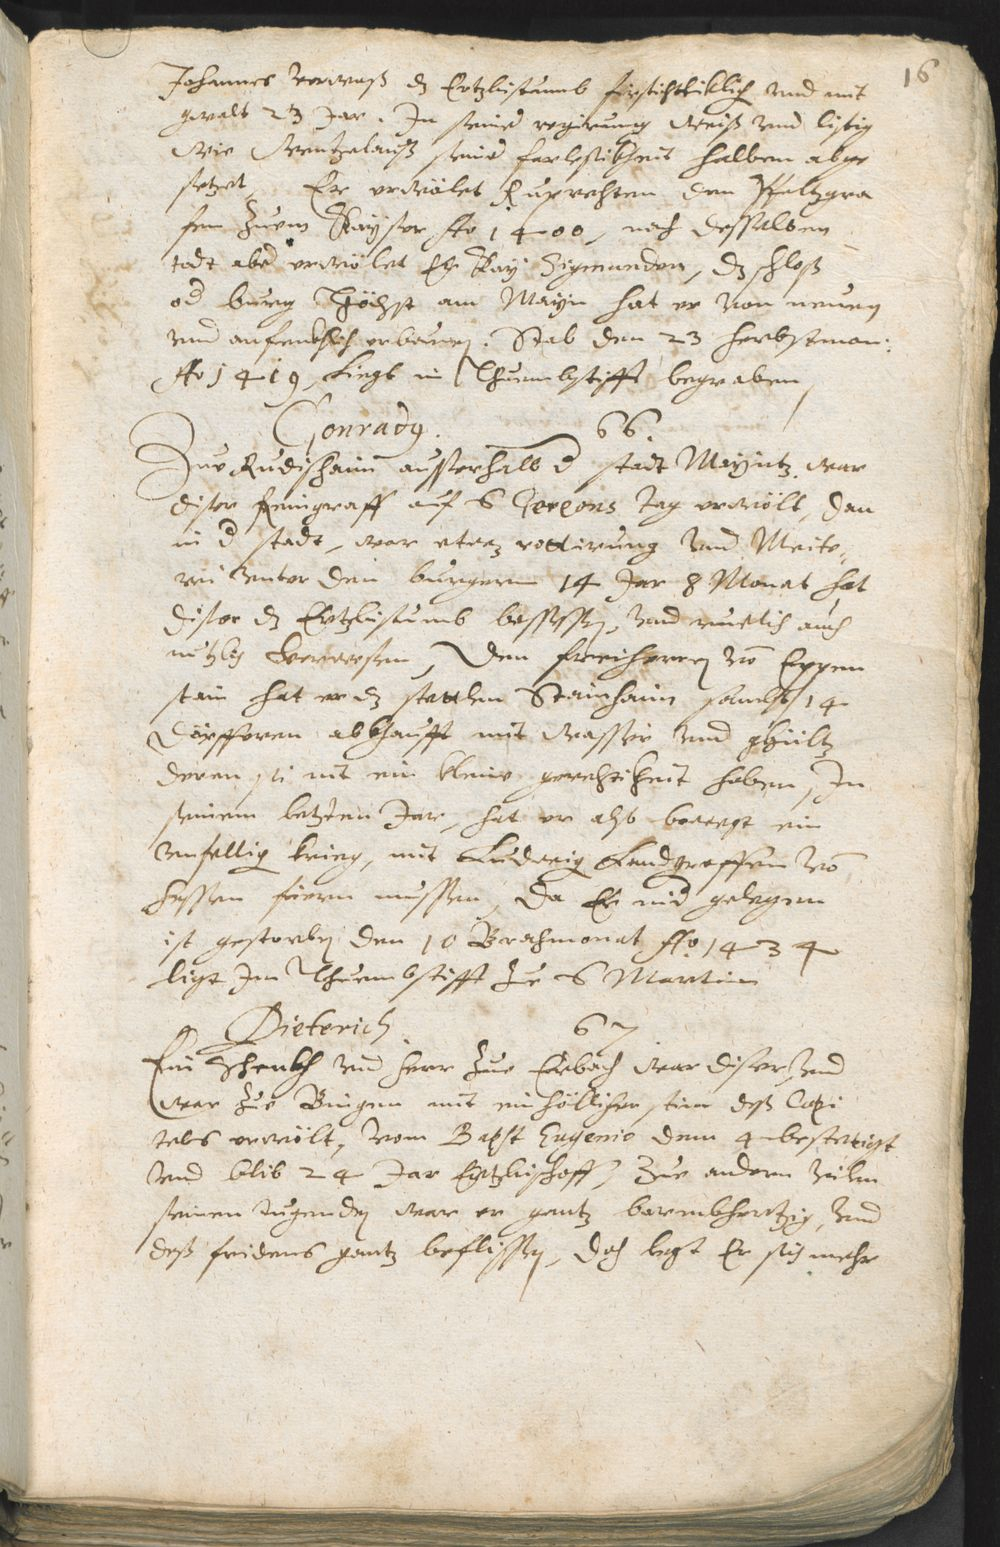 16
Johannes verwaß dz Ertzbistumb fürsichtiklich vnd mit
gwalt 23 Jar. In seiner regirung weiß vnd listig
wie Wentzelauß seiner farlessikheit halben abge
setzet, Er erwölet Ruprechten den Pfaltzgra
fen zuom Kayser Ao 1400, nach desselben
todt aber erwölet Er Kay Sigmunden, dz schloß
od burg Höchst am Mayn hat er von neuem
vnd anfenkhlich erbauen. Starb den 23 herbstmon:
Ao 1419, Ligt im Thuembstifft begraben,
Conradus. 66.
Zue Rudishaim ausserhalb d stadt Mayntz, war
diser Reingraff auf S Gereons tag erwölt, dan
in d stadt, war etwz rottirung vnd Meite,
rei vnter den burgern 14 Jar 8 Monat hat
diser dz Ertzbistumb besessen, vnd ruelich auch
nutzlich verwesen, Den freiherren vo Eppen
stain hat er dz stettlen Stainhaim sambt 14
Dörfferen abkhaufft mit wasser vnd ghültz
deren si nit ein kleine gerechtikheit haben, In
seinem letzten Jar, hat er alß bewegt ein
vnfellig krieg, mit Ludwig Landgraffen vo
Hessen füeren muessen, da Er nid gelegen
ist gestorben den 10 Brachmonat Ao 1434
ligt Im Thuembstifft zue S Martin
Dieterich 67
Ein Schenkh vnd herr zue Erbach war diser, vnd
war zue Bingen mit einhölliger stim deß Capi
tels erwölt, vom Bapst Eugenio dem 4 bestettigt
vnd blib 24 Jar Ertzbischoff, Zue andern zeilen
seinen tugenden war er gantz barmhertzig, vnd
deß fridens gantz beflissen, doch legt Er sich mehr